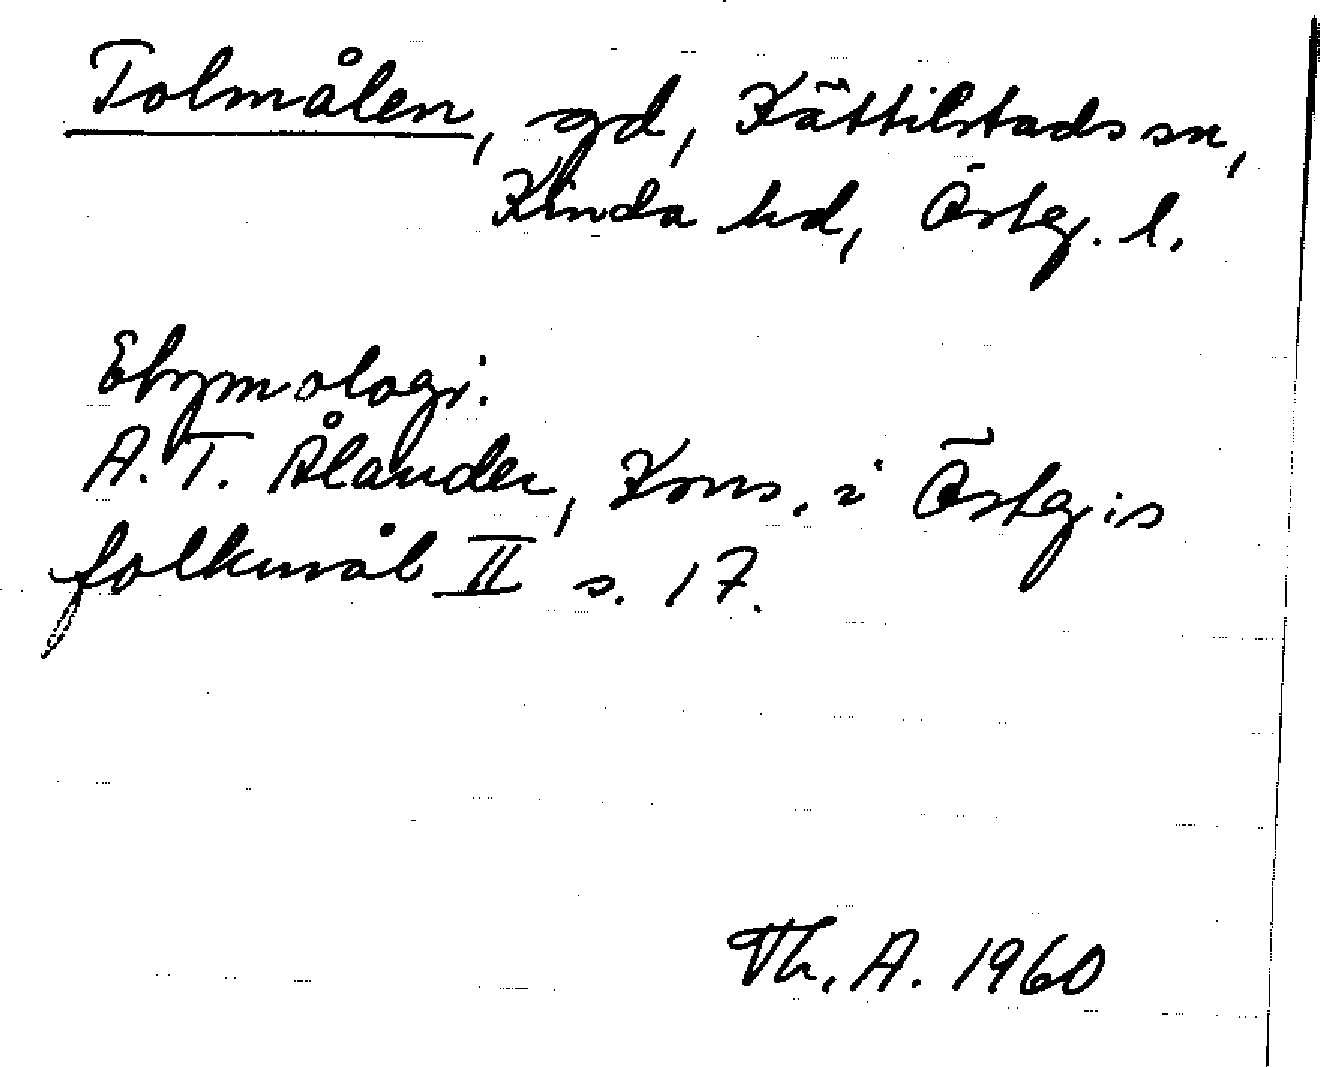 Tolmålen, gd, Kättilstads sn,
Kinda hd, Östg. l.
Etymologi:
A. T. Ålander, Kons. i Östg:s
folkmål II s. 17.
Th. A. 1960